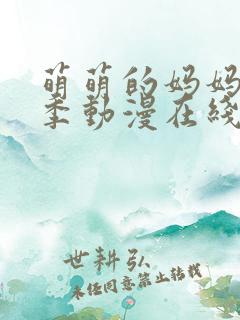 萌萌的妈妈
季動漫在綫
世耕弘
未经同意禁止转载